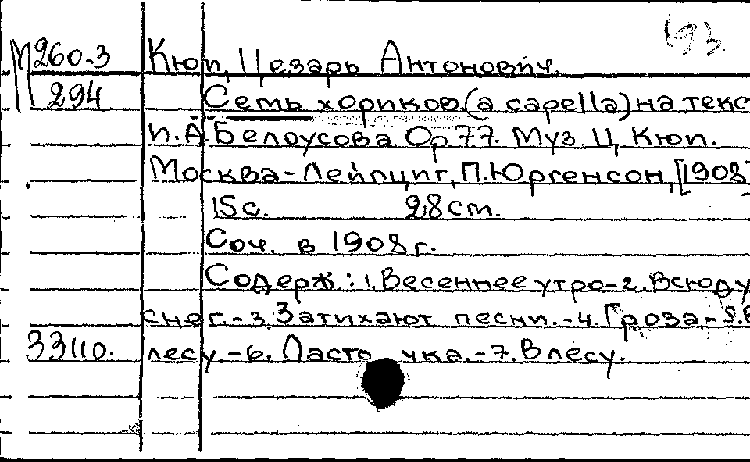 193.
М 260-3 Кюи, Цезарь Антонович.
294 Семь хориков (a capella) на текс
И. А. Белоусова Ор 77. Муз. Ц. Кюи.
Москва-Лейпциг, П. Юргенсон, [1908]
15 с. 28 cm.
Соч. в 1908 г.
Содерж.: 1. Весеннее утро-2. Всюду
снег.-3. Затихают песни.-4. Гроза.-5. В
33110. лесу.-6. Ласточка.-7. В лесу.